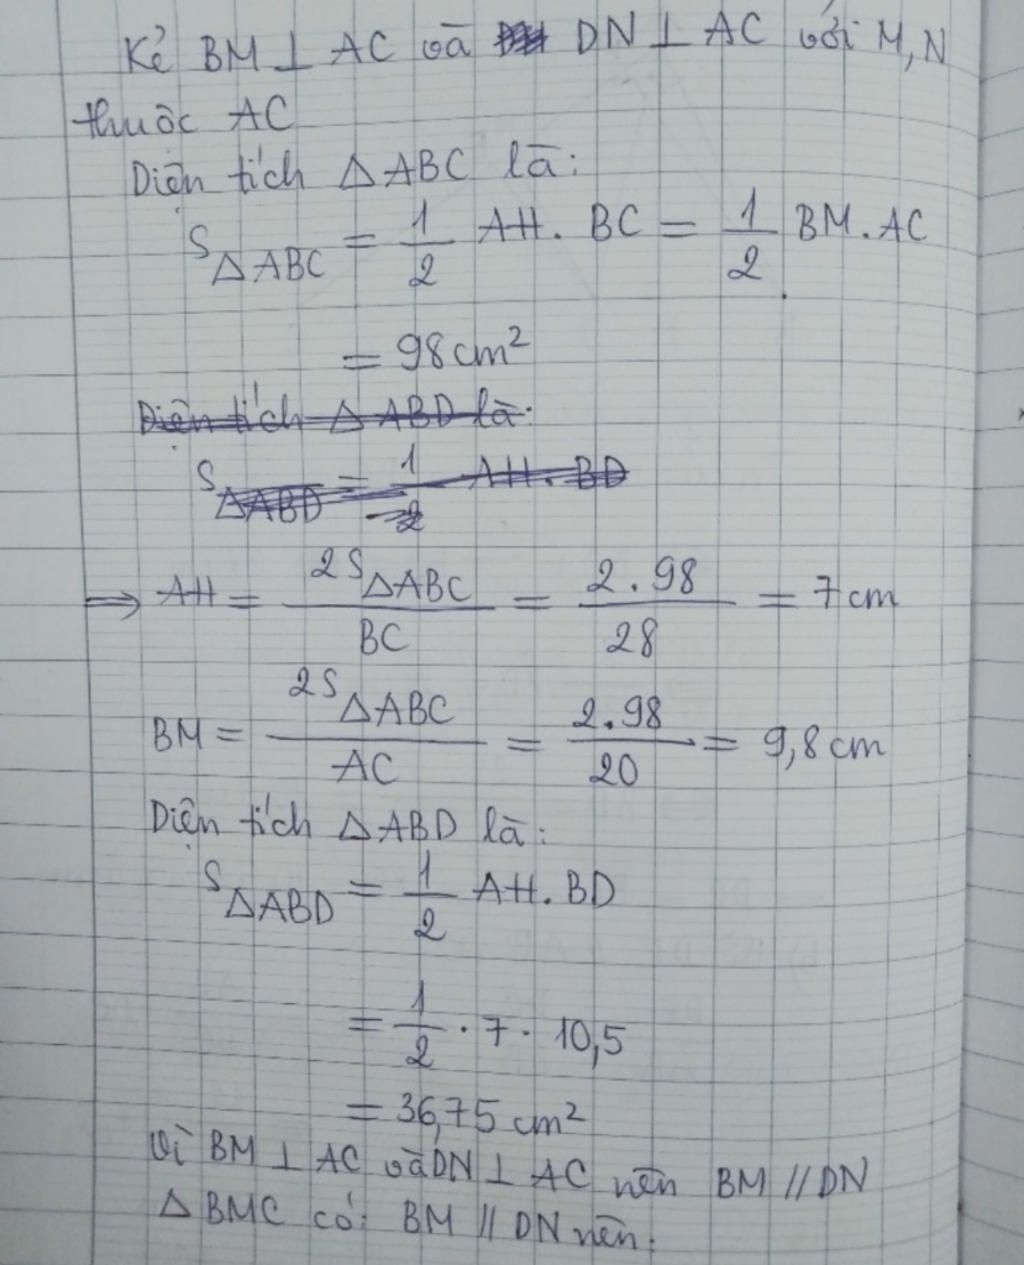 Kẻ BM ⊥ AC và DN ⊥ AC với M, N
thuộc AC
Diện tích △ABC là:
S△ABC = 1/2 AH. BC = 1/2 BM. AC
= 98 cm²
Diện tích △ABD là:
S△ABD = 1/2 AH. BD
⇒ AH = 2S△ABC/BC = 2.98/28 = 7 cm
BM = 2S△ABC/AC = 2.98/20 = 9,8 cm
Diện tích △ABD là:
S△ABD = 1/2 AH. BD
= 1/2 . 7 . 10,5
= 36,75 cm²
Vì BM ⊥ AC và DN ⊥ AC nên BM // DN
△BMC có: BM // DN nên: